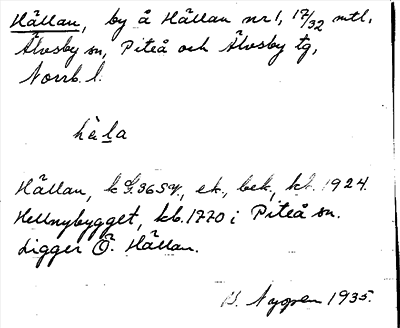 Hällan, by å Hällan nr 1, 17/32 mtl,
Älvsby sn, Piteå och Älvsby tg,
Norrb. l.
hä̀la
Hällan, k G.365V, ek., bek., kt. 1924.
Hellnybygget, kb. 1770 i Piteå sn.
Ligger Ö. Hällan.
B. Nygren 1935.